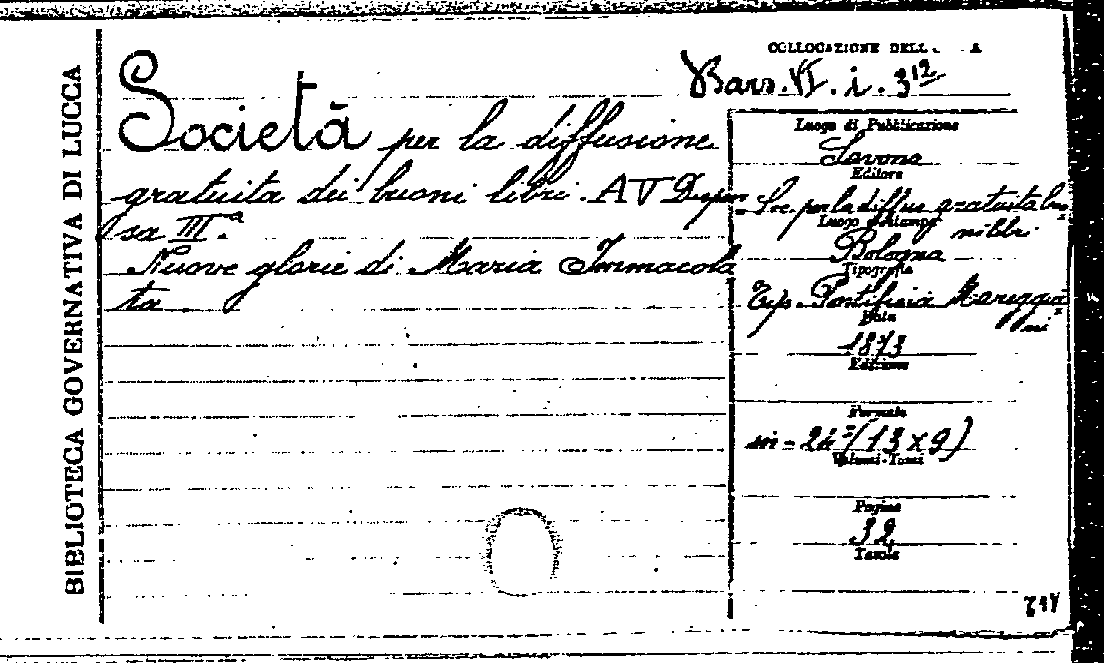 BIBLIOTECA GOVERNATIVA DI LUCCA
COLLOCAZIONE
Bars. VI. i. 3 12
Società per la diffusione
gratuita dei buoni libri. A V Dispen-
sa III.a
Nuove glorie di Maria Immacola
ta
Luogo di Pubblicazione
Savona
Editore
Soc. per la diffus gratuita buo
ni libri
Luogo di Stampa
Bologna
Tipografia
Tip. Pontificia Mareggia=
ni
Data
1873
Edizione
Formato
in - 24° (13 x 9)
Volumi-Tomi
Pagine
32
Tavole